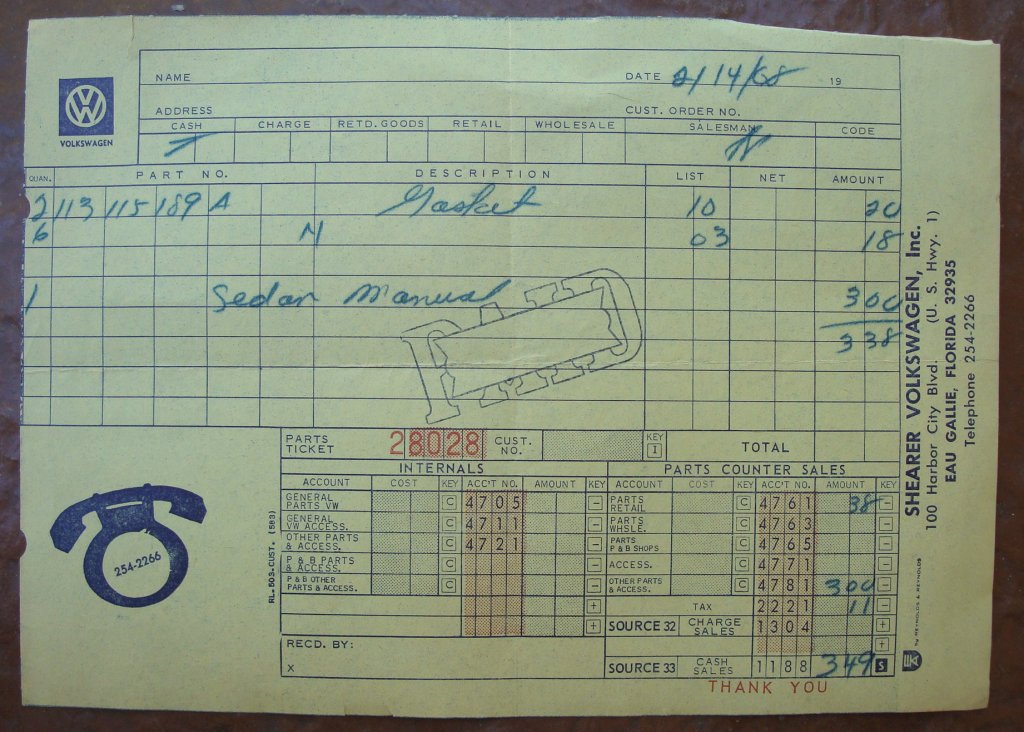 NAME DATE 2/14/68 19
ADDRESS CUST. ORDER NO.
VOLKSWAGEN
CASH CHARGE RETD. GOODS RETAIL WHOLESALE SALESMAN CODE
QUAN. PART NO. DESCRIPTION LIST NET AMOUNT
2 113 115 189 A Gasket 10 20
6 N 03 18
1 Sedan Manual 300
338
PARTS TICKET 28028 CUST. NO. KEY I TOTAL
INTERNALS PARTS COUNTER SALES
ACCOUNT COST KEY ACC'T NO. AMOUNT KEY ACCOUNT COST KEY ACC'T NO. AMOUNT KEY
GENERAL PARTS VW C 4705 — PARTS RETAIL C 4761 38 —
GENERAL VW ACCESS. C 4711 — PARTS WHSLE. C 4763 —
OTHER PARTS & ACCESS. C 4721 — PARTS P & B SHOPS C 4765 —
P & B PARTS & ACCESS. C — ACCESS. C 4771 —
P & B OTHER PARTS & ACCESS. C — OTHER PARTS & ACCESS. C 4781 300 —
+ TAX 2221 11 —
+ SOURCE 32 CHARGE SALES 1304 +
+
RECD. BY:
X
SOURCE 33 CASH SALES 1188 349 S
THANK YOU
254-2266
RL.503.CUST. (583)
SHEARER VOLKSWAGEN, Inc.
100 Harbor City Blvd. (U. S. Hwy. 1)
EAU GALLIE, FLORIDA 32935
Telephone 254-2266
by REYNOLDS & REYNOLDS